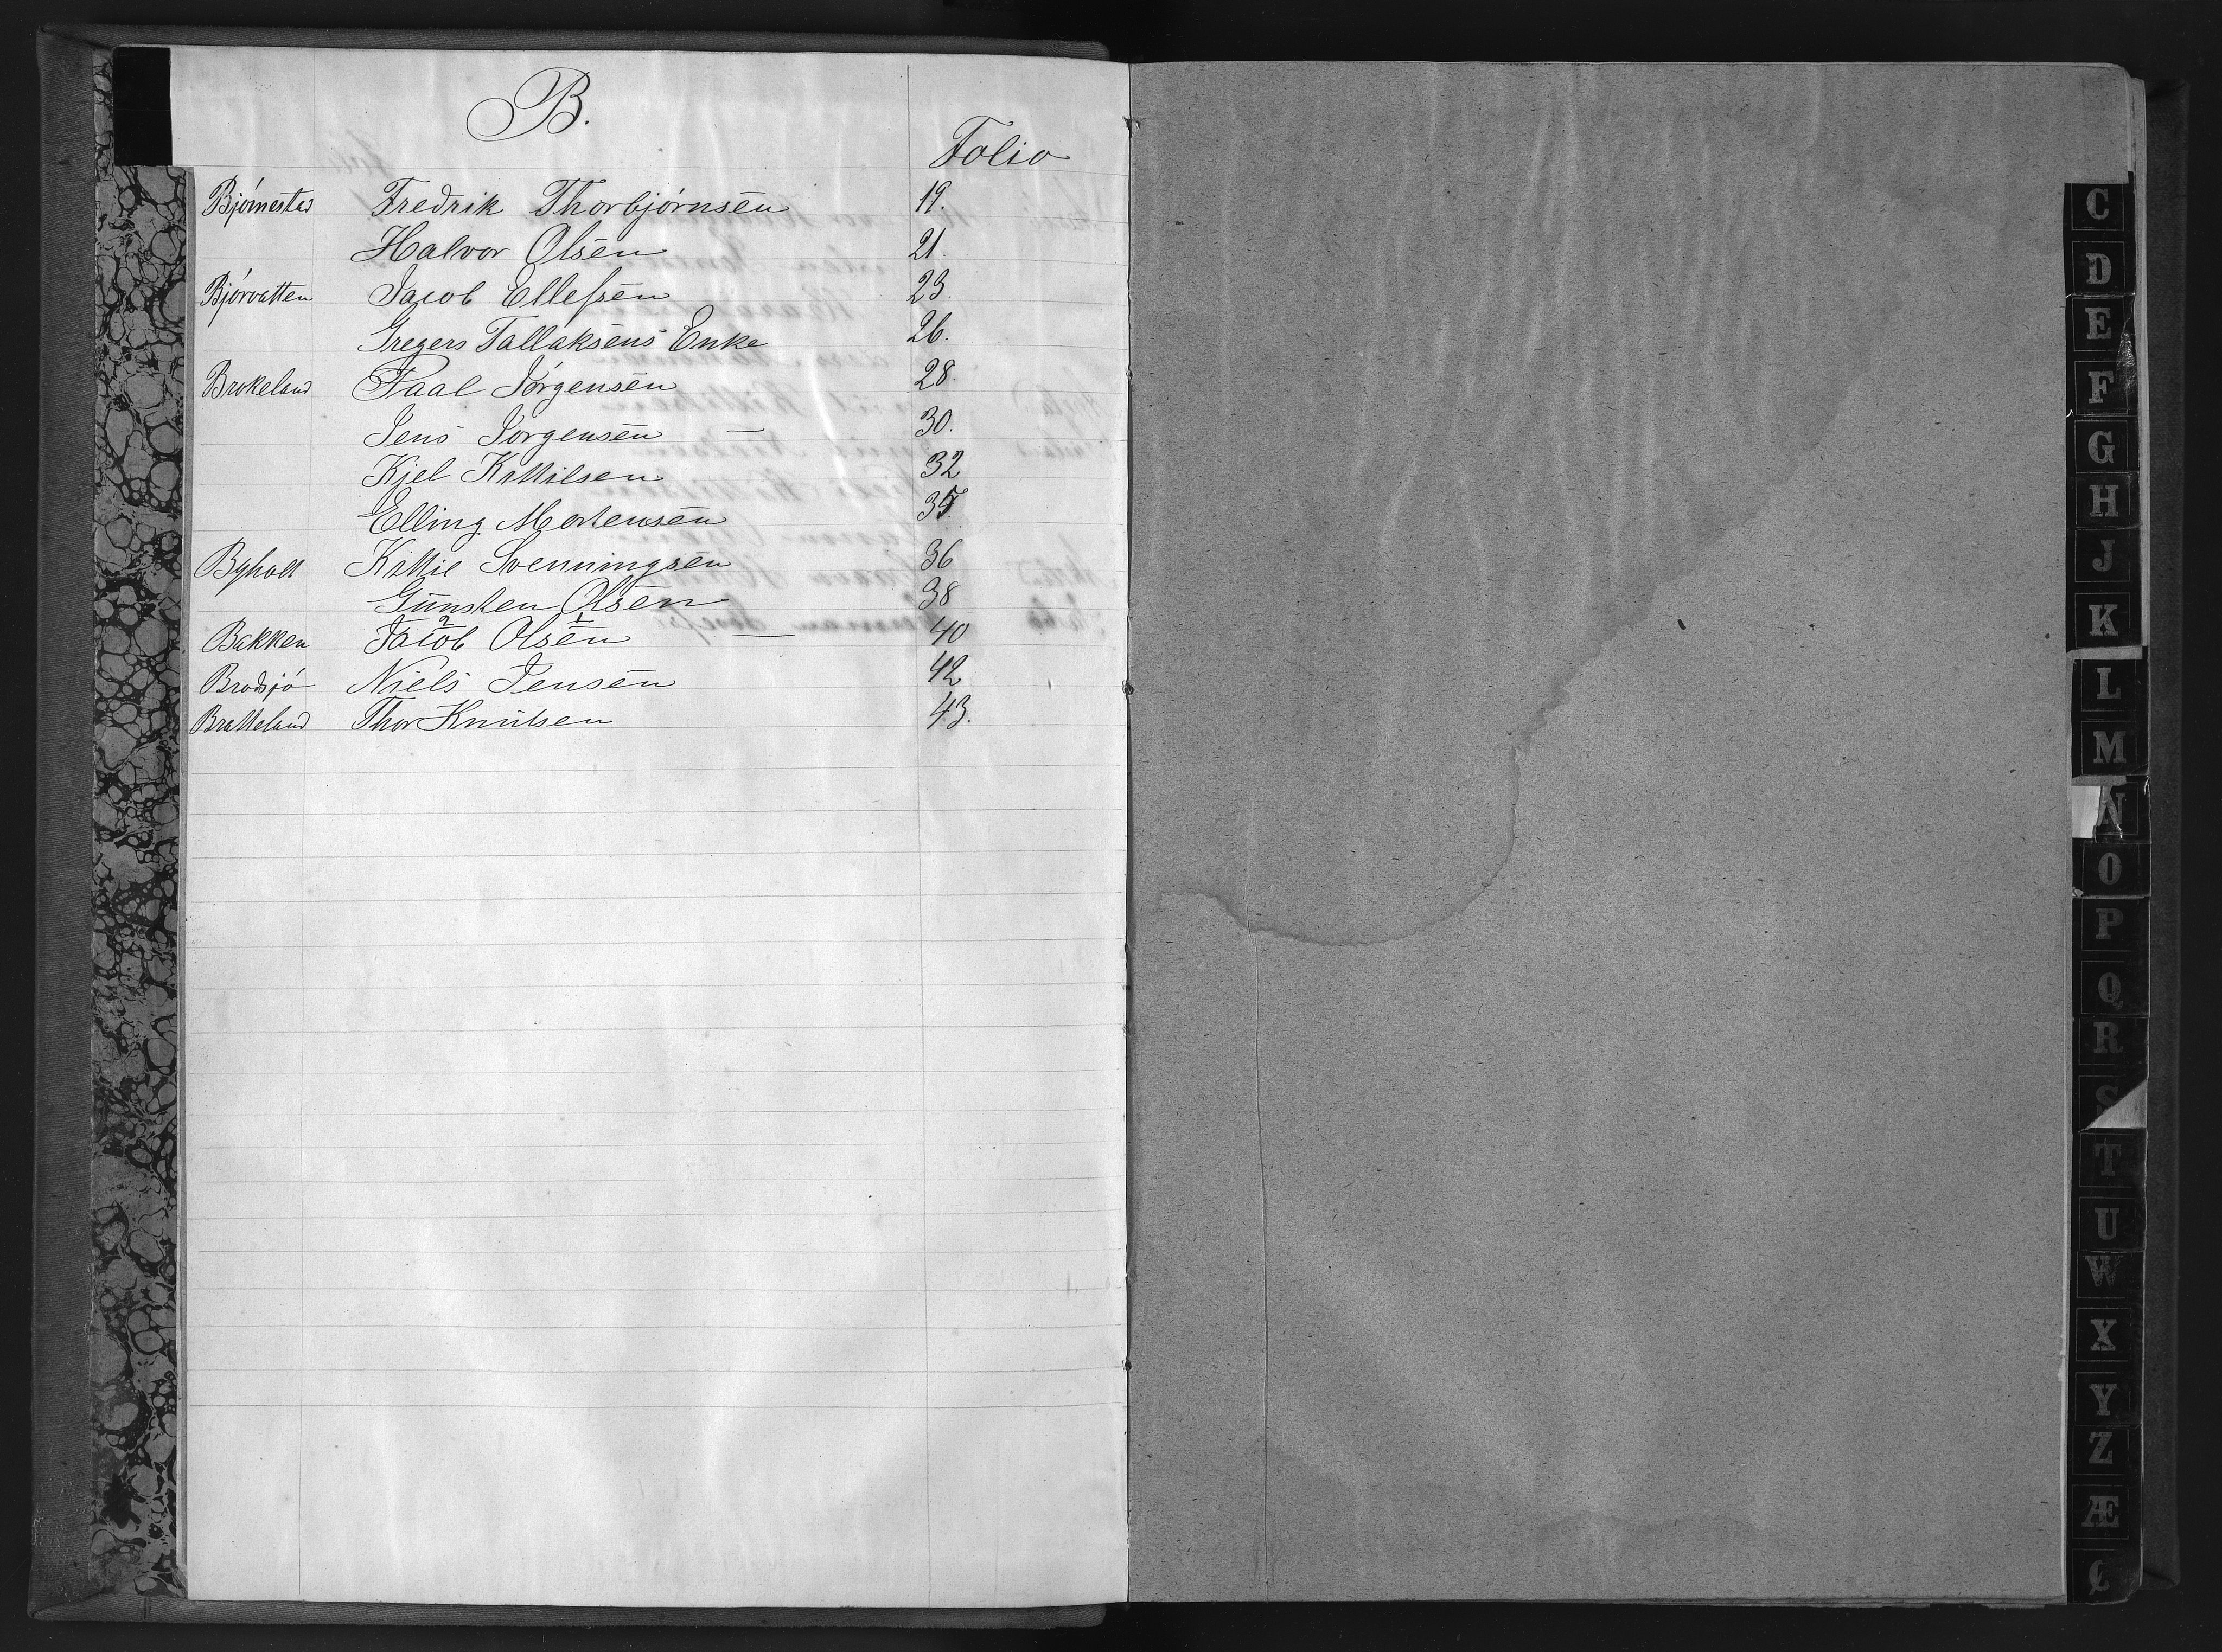 B.
Folio
Bjørnestad Fredrik Thorbjørnsen 19.
Halvor Olsen 21.
Bjørvatten Jacob Ellefsen 23.
Gregers Tallaksens Enke 26.
Brokeland Paal Jørgensen 28.
Jens Jørgensen — 30.
Kjel Kittilsen 32
Elling Mortensen 35.
Byholt Kittil Svenningsen 36
Gunsten Olsen 38
2 1
Bakken Jacob Olsen — 40
Brodsjø Niels Jensen 42
Bratteland Thor Knutsen 43.
C
D
E
F
G
H
J
K
L
M
N
O
P
Q
R
S
T
U
W
X
Y
Z
Æ